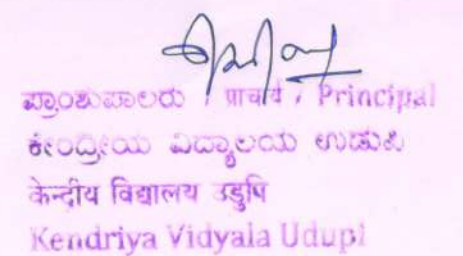 ಪ್ರಾಂಶುಪಾಲರು / प्राचार्य / Principal
ಕೇಂದ್ರೀಯ ವಿದ್ಯಾಲಯ ಉಡುಪಿ
केन्द्रीय विद्यालय उडुपि
Kendriya Vidyala Udupi